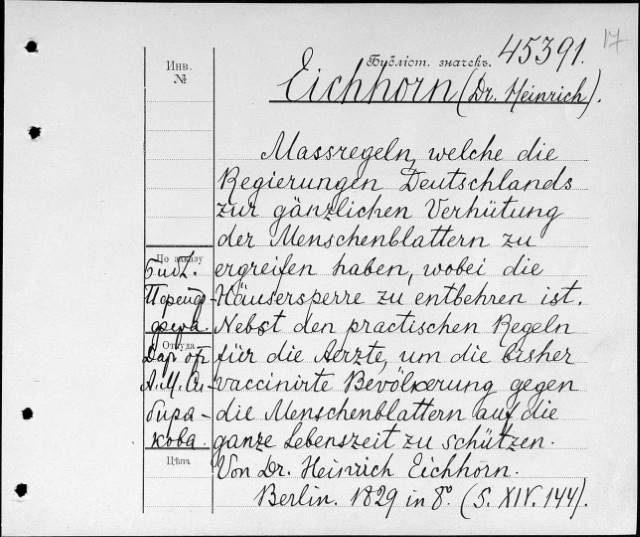 17
Библіот. значекъ. 45391.
Инв.
№
Eichhorn (Dr. Heinrich).
Massregeln, welche die
Regierungen Deutschlands
zur gänzlichen Verhütung
der Menschenblattern zu
ergreifen haben, wobei die
Häusersperre zu entbehren ist.
Nebst den practischen Regeln
für die Aerzte, um die bisher
vaccinirte Bevölkerung gegen
die Menschenblattern auf die
ganze Lebenszeit zu schützen.
Von Dr. Heinrich Eichhorn.
Berlin. 1829 in 8°. (S. XIV. 144).
По заказу
Библ.
Откуда
Дар от
А. М. Си-
биря-
кова.
Цѣна